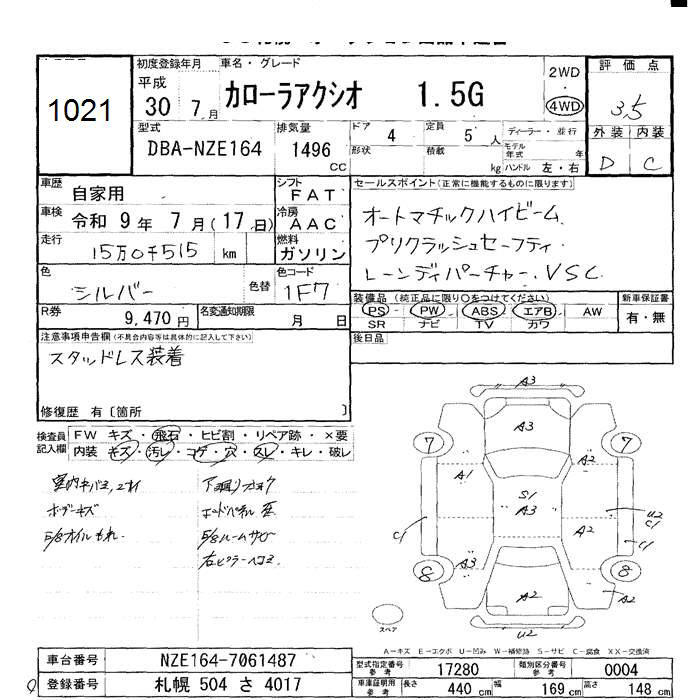 1021
初度登録年月
平成
30 7月
車名・グレード
カローラアクシオ 1.5G
2WD
4WD
評価点
3.5
外装 内装
D C
型式
DBA-NZE164
排気量
1496
CC
ドア 4
形状
定員 5 人
積載 kg
ディーラー・並行
モデル年式 年
ハンドル 左・右
車歴
自家用
シフト
FAT
車検
令和 9年 7月(17日)
冷房
AAC
走行
15万0千515 km
燃料
ガソリン
色
シルバー
色替
色コード
1F7
R券
9,470円
名変通知期限
月 日
セールスポイント(正常に機能するものに限ります)
オートマチックハイビーム
プリクラッシュセーフティ.
レーンディパーチャー.VSC
装備品(純正品に限り○をつけてください)
PS PW ABS エアB AW
SR ナビ TV カワ
新車保証書
有・無
後日品
注意事項申告欄(不具合内容等は具体的に記入して下さい)
スタッドレス装着
修復歴 有〔箇所 〕
検査員記入欄
FW キズ・飛石・ヒビ割・リペア跡・×要
内装 キズ・汚レ・コゲ・穴・スレ・キレ・破レ
ボデーキズ
オイルもれ.
A3
A3
7
7
A1
S1
A3
A2
U2
C1
C1
C1
A3
8
8
A2
A2
U2
スペア
A-キズ E-エクボ U-凹み W-補修跡 S-サビ C-腐食 XX-交換済
車台番号
NZE164-7061487
登録番号
札幌 504 さ 4017
型式指定番号
参考
17280
類別区分番号
参考
0004
車庫証明用
参考
長さ 440 cm
幅 169 cm
高さ 148 cm